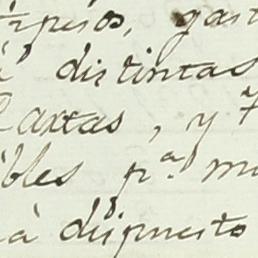 pesos, gast
distintas
Cartas, y
bles p.ª ma
à dispuesto